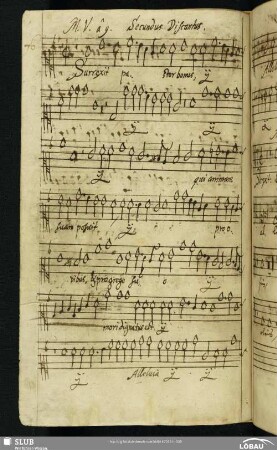 M. V. à 9. Secundus Discantus.
Surrexit pa- stor bonus, ij
ij ij
ij qui animam
suam posuit ij pro o-
vibus, & pro grege su- o ij
mori dignatus est. ij
ij Alleluia ij ij
SLUB
Wir führen Wissen.
LÖBAU